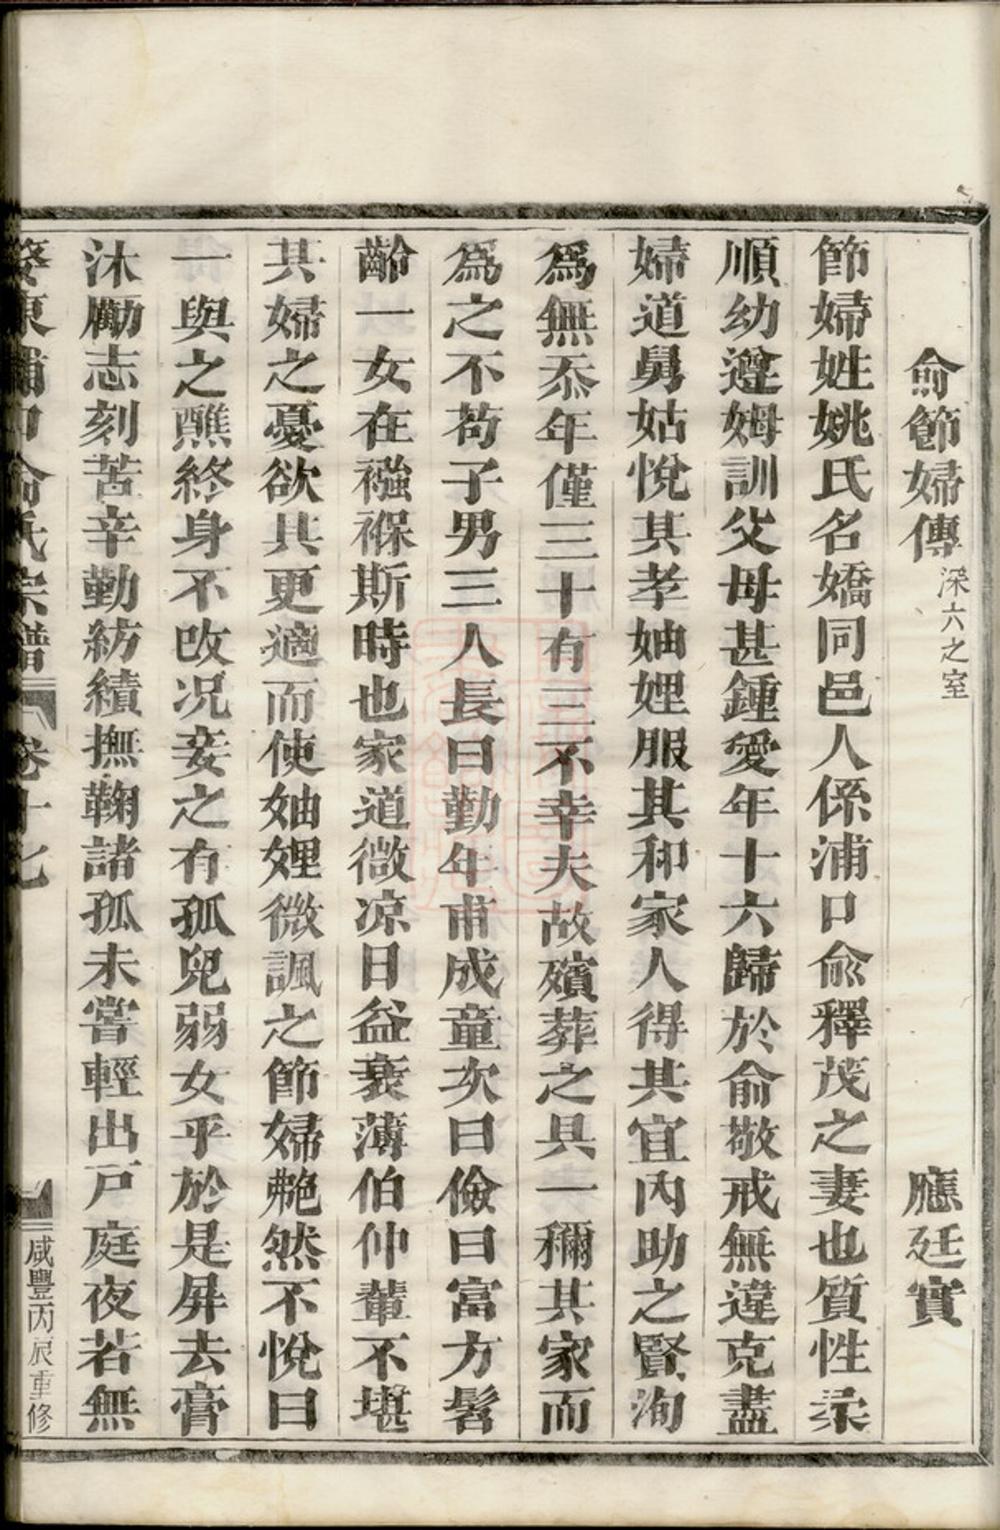 俞節婦傳深六之室　應廷實
節婦姓姚氏名嬌同邑人係浦口俞釋茂之妻也質性柔
順幼遵姆訓父母甚鍾愛年十六歸於俞敬戒無違克盡
婦道舅姑悅其孝妯娌服其和家人得其宜內助之賢洵
為無忝年僅三十有三不幸夫故殯葬之具一稱其家而
為之不苟子男三人長曰勤年甫成童次曰儉曰富方髫
齡一女在襁褓斯時也家道微凉日益衰薄伯仲輩不堪
其婦之憂欲其更適而使妯娌微諷之節婦艴然不悅曰
一與之醮終身不改况妾之有孤兒弱女乎於是屏去膏
沐勵志刻苦辛勤紡績撫鞠諸孤未嘗輕出戶庭夜若無
東浦口俞氏宗譜　卷十七　咸豐丙辰重修